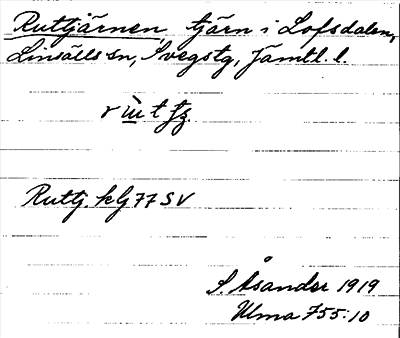 Ruttjärnen, tjärn i Lofsdalen,
Linsälls sn, Svegs tg, Jämtl. l.
Ruttj. kG 77 SV
S. Åsander 1919
Ulma 755:10